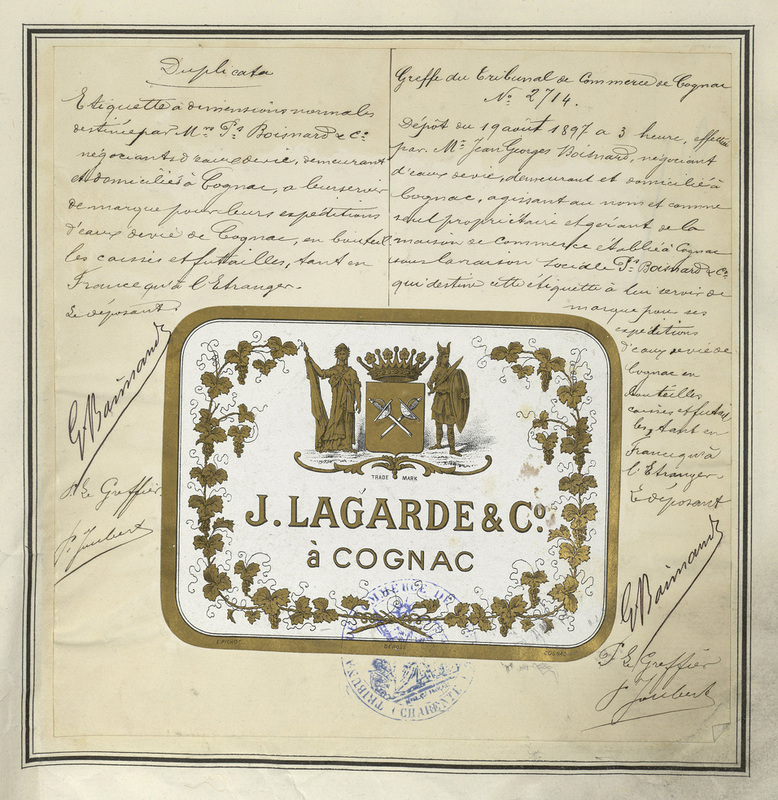 Duplicata
Etiquette à dimensions normales
destinée par Mrs Ps Boisnard & Cie
négociants d'eaux de vie, demeurant
et domiciliés à Cognac, a leur servir
de marque pour leurs expéditions
d'eaux de vie de Cognac, en bouteil
les caisses et futailles, tant en
France qu'à l'Etranger.
Le déposant
Le Greffier
Greffe du Tribunal de Commerce de Cognac
No 2714.
Dépôt du 19 août 1897 a 3 heure, effectué
par Mr Jean Georges Boisnard, négociant
d'eaux de vie, demeurant et domicilié à
Cognac, agissant au nom et comme
seul propriétaire et gérant de la
maison de commerce établie à Cognac
sous la raison sociale Ps Boisnard & Cie
qui destine cette étiquette à leur servir de
marque pour ses
expéditions
d'eaux de vie de
Cognac en
bouteilles
caisses et futail
les, tant en
France qu'à
l'Etranger.
Le déposant
Le Greffier
J. Joubert
TRADE MARK
J. LAGARDE & Co.
à COGNAC
DÉPOSÉ
COGNAC
TRIBUNAL COMMERCE DE
(CHARENTE)